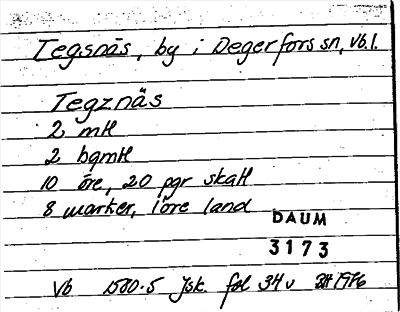 Tegsnäs, by i Degerfors sn, Vb.l.
Tegznäs
2 mtl
2 bgmtl
10 öre, 20 pgr skatt
8 marker, 1 öre land
DAUM
3173
Vb 1500.5 Jsk. fol 34 v 1976